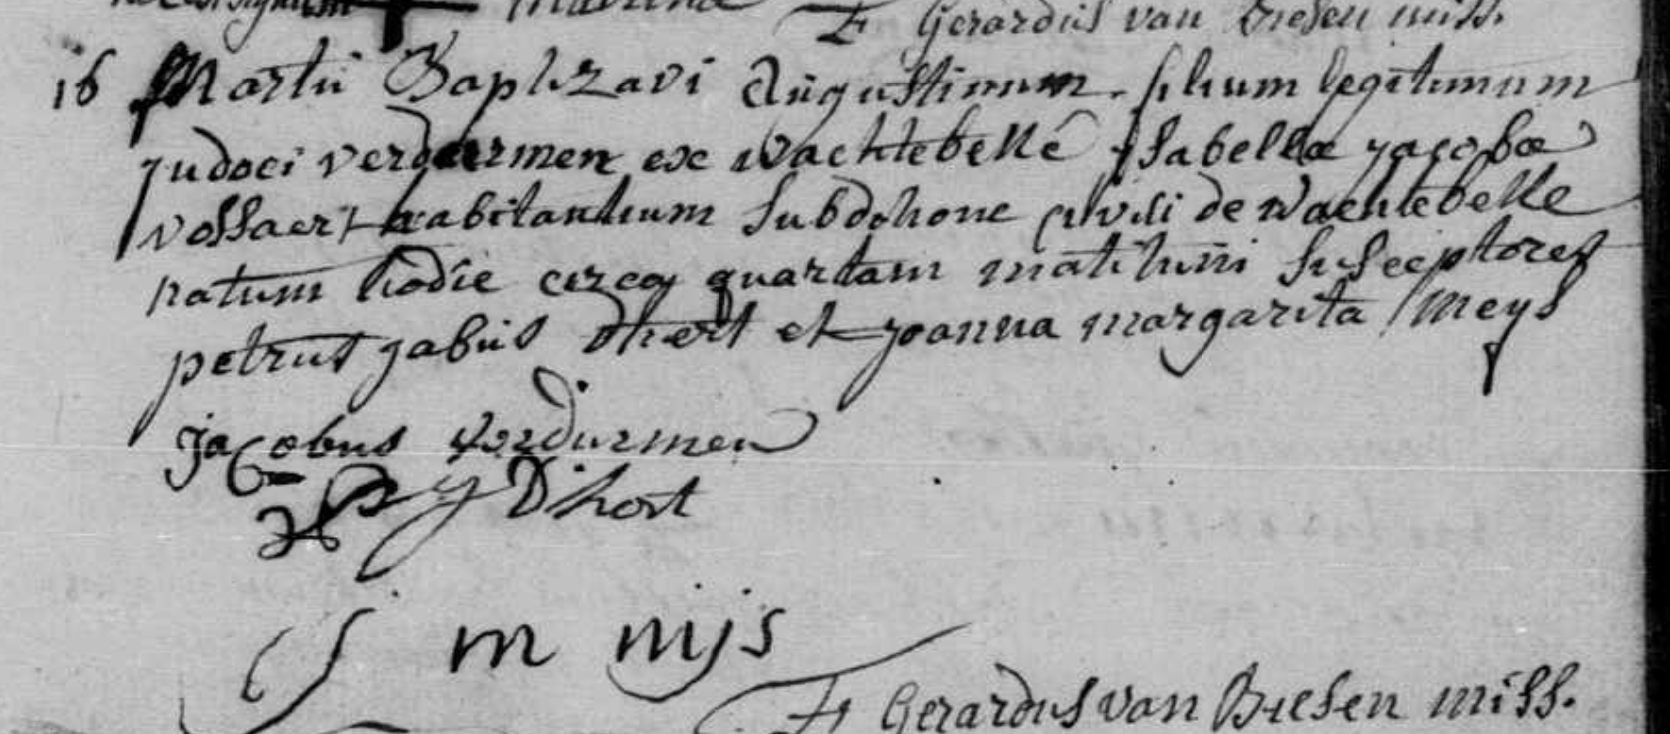 Gerardus van Biesen miss.
16 Martii Baptizavi Augustinum filium legitimum
Judoci verdurmen ex wachtebeke & Isabellæ jacobæ
vossaert habitantium sub dohone civili de wachtebeke
natum hodie circa quartam matutini susceptores
petrus jabus dhert et joanna margarita Meys
jacobus verdurmen
p j Dhort
J m nijs
Fr Gerardus van Biesen miss.